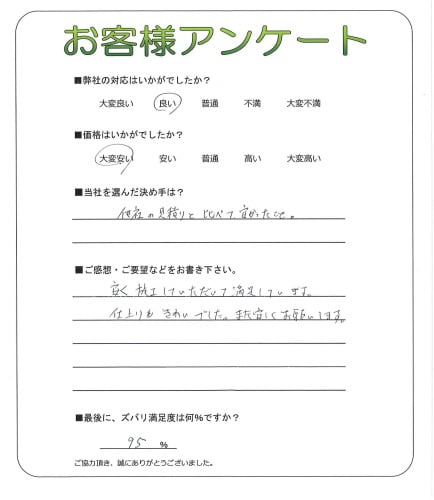 お客様アンケート
■弊社の対応はいかがでしたか？
大変良い 良い 普通 不満 大変不満
■価格はいかがでしたか？
大変安い 安い 普通 高い 大変高い
■当社を選んだ決め手は？
他社の見積りと比べて安かったこと。
■ご感想・ご要望などをお書き下さい。
安く施工していただいて満足しています。
仕上りもきれいでした。また宜しくお願いします。
■最後に、ズバリ満足度は何％ですか？
95 ％
ご協力頂き、誠にありがとうございました。